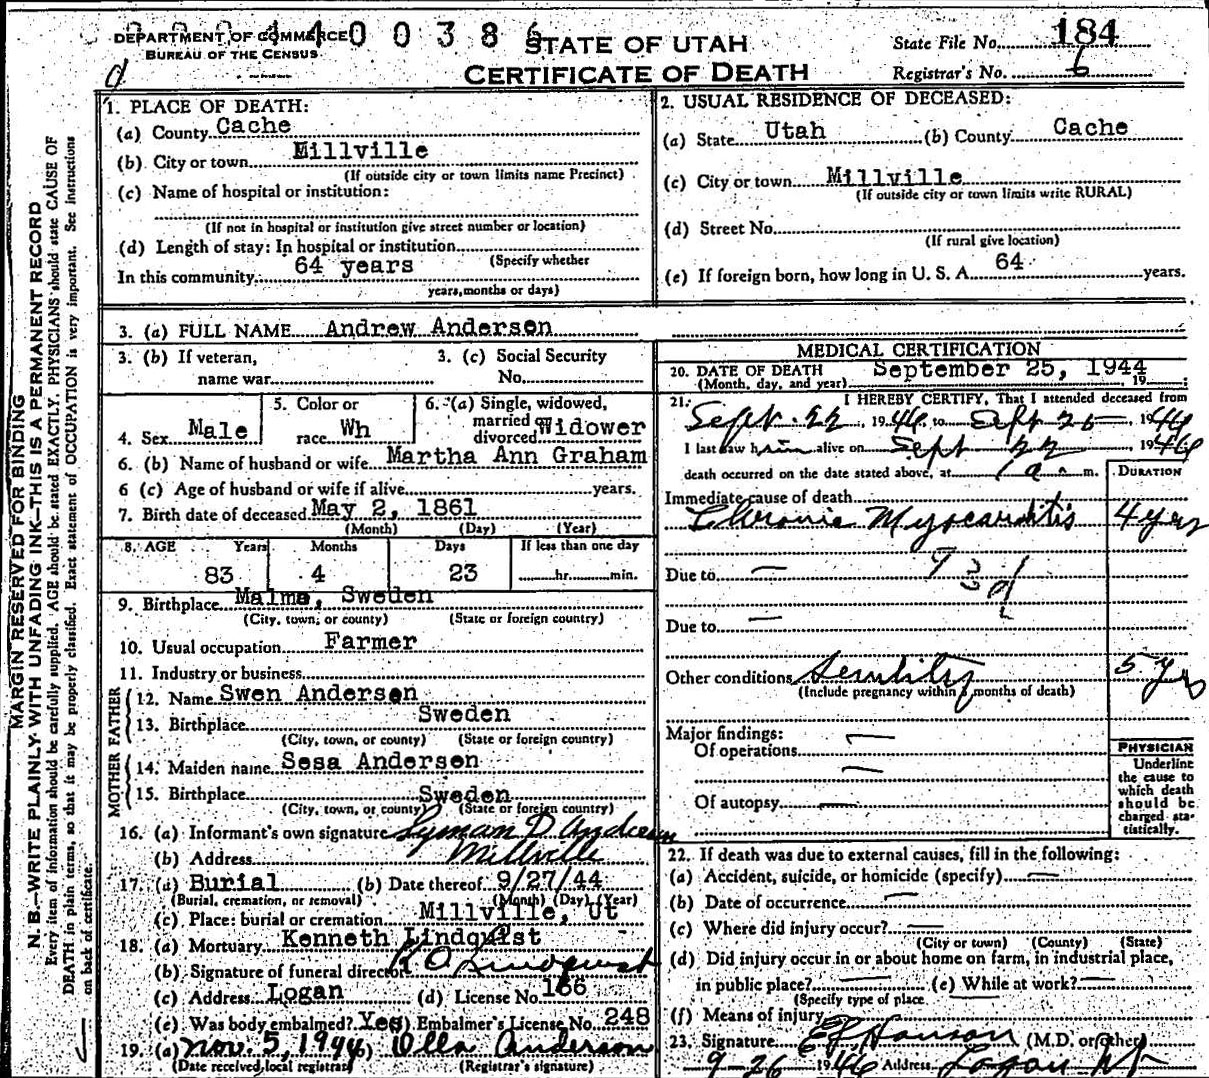 DEPARTMENT OF COMMERCE
BUREAU OF THE CENSUS
0 0 3 8 6
STATE OF UTAH
CERTIFICATE OF DEATH
State File No. 184
Registrar's No. 6
MARGIN RESERVED FOR BINDING
N. B.—WRITE PLAINLY WITH UNFADING INK—THIS IS A PERMANENT RECORD
Every item of information should be carefully supplied. AGE should be stated EXACTLY. PHYSICIANS should state CAUSE OF
DEATH in plain terms, so that it may be properly classified. Exact statement of OCCUPATION is very important. See instructions
on back of certificate.
1. PLACE OF DEATH:
(a) County Cache
(b) City or town Millville
(If outside city or town limits name Precinct)
(c) Name of hospital or institution:
(If not in hospital or institution give street number or location)
(d) Length of stay: In hospital or institution
(Specify whether
In this community 64 years
years, months or days)
2. USUAL RESIDENCE OF DECEASED:
(a) State Utah (b) County Cache
(c) City or town Millville
(If outside city or town limits write RURAL)
(d) Street No.
(If rural give location)
(e) If foreign born, how long in U. S. A. 64 years.
3. (a) FULL NAME Andrew Andersen
3. (b) If veteran, name war
3. (c) Social Security No.
4. Sex Male
5. Color or race Wh
6. (a) Single, widowed, married divorced Widower
6. (b) Name of husband or wife Martha Ann Graham
6 (c) Age of husband or wife if alive years.
7. Birth date of deceased May 2, 1861
(Month) (Day) (Year)
8. AGE Years Months Days If less than one day
83 4 23 hr. min.
9. Birthplace Malmo, Sweden
(City, town, or county) (State or foreign country)
10. Usual occupation Farmer
11. Industry or business
FATHER
12. Name Swen Andersen
13. Birthplace Sweden
(City, town, or county) (State or foreign country)
MOTHER
14. Maiden name Sesa Andersen
15. Birthplace Sweden
(City, town, or county) (State or foreign country)
16. (a) Informant's own signature Lyman D. Andersen
(b) Address Millville
17. (a) Burial (b) Date thereof 9/27/44
(Burial, cremation, or removal) (Month) (Day) (Year)
(c) Place: burial or cremation Millville, Ut
18. (a) Mortuary Kenneth Lindquist
(b) Signature of funeral director K O Lindquist
(c) Address Logan (d) License No. 166
(e) Was body embalmed? Yes Embalmer's License No. 248
19. (a) Nov. 5, 1944 (b) Olla Anderson
(Date received local registrar) (Registrar's signature)
MEDICAL CERTIFICATION
20. DATE OF DEATH September 25, 1944
(Month, day, and year) 19
21. I HEREBY CERTIFY, That I attended deceased from
Sept. 22, 1944 to Sept 25, 1944
I last saw him alive on Sept 22 1944
death occurred on the date stated above, at 1 a. m.
DURATION
Immediate cause of death
Chronic Myocarditis 4 yrs
Due to — 93d
Due to —
Other conditions Senility 5 yrs
(Include pregnancy within 3 months of death)
Major findings:
Of operations —
—
Of autopsy —
PHYSICIAN
Underline
the cause to
which death
should be
charged sta-
tistically.
22. If death was due to external causes, fill in the following:
(a) Accident, suicide, or homicide (specify) —
(b) Date of occurrence —
(c) Where did injury occur? —
(City or town) (County) (State)
(d) Did injury occur in or about home on farm, in industrial place,
in public place? — (e) While at work? —
(Specify type of place
(f) Means of injury —
23. Signature (M.D. or other)
9-26 1944 Address Logan Ut